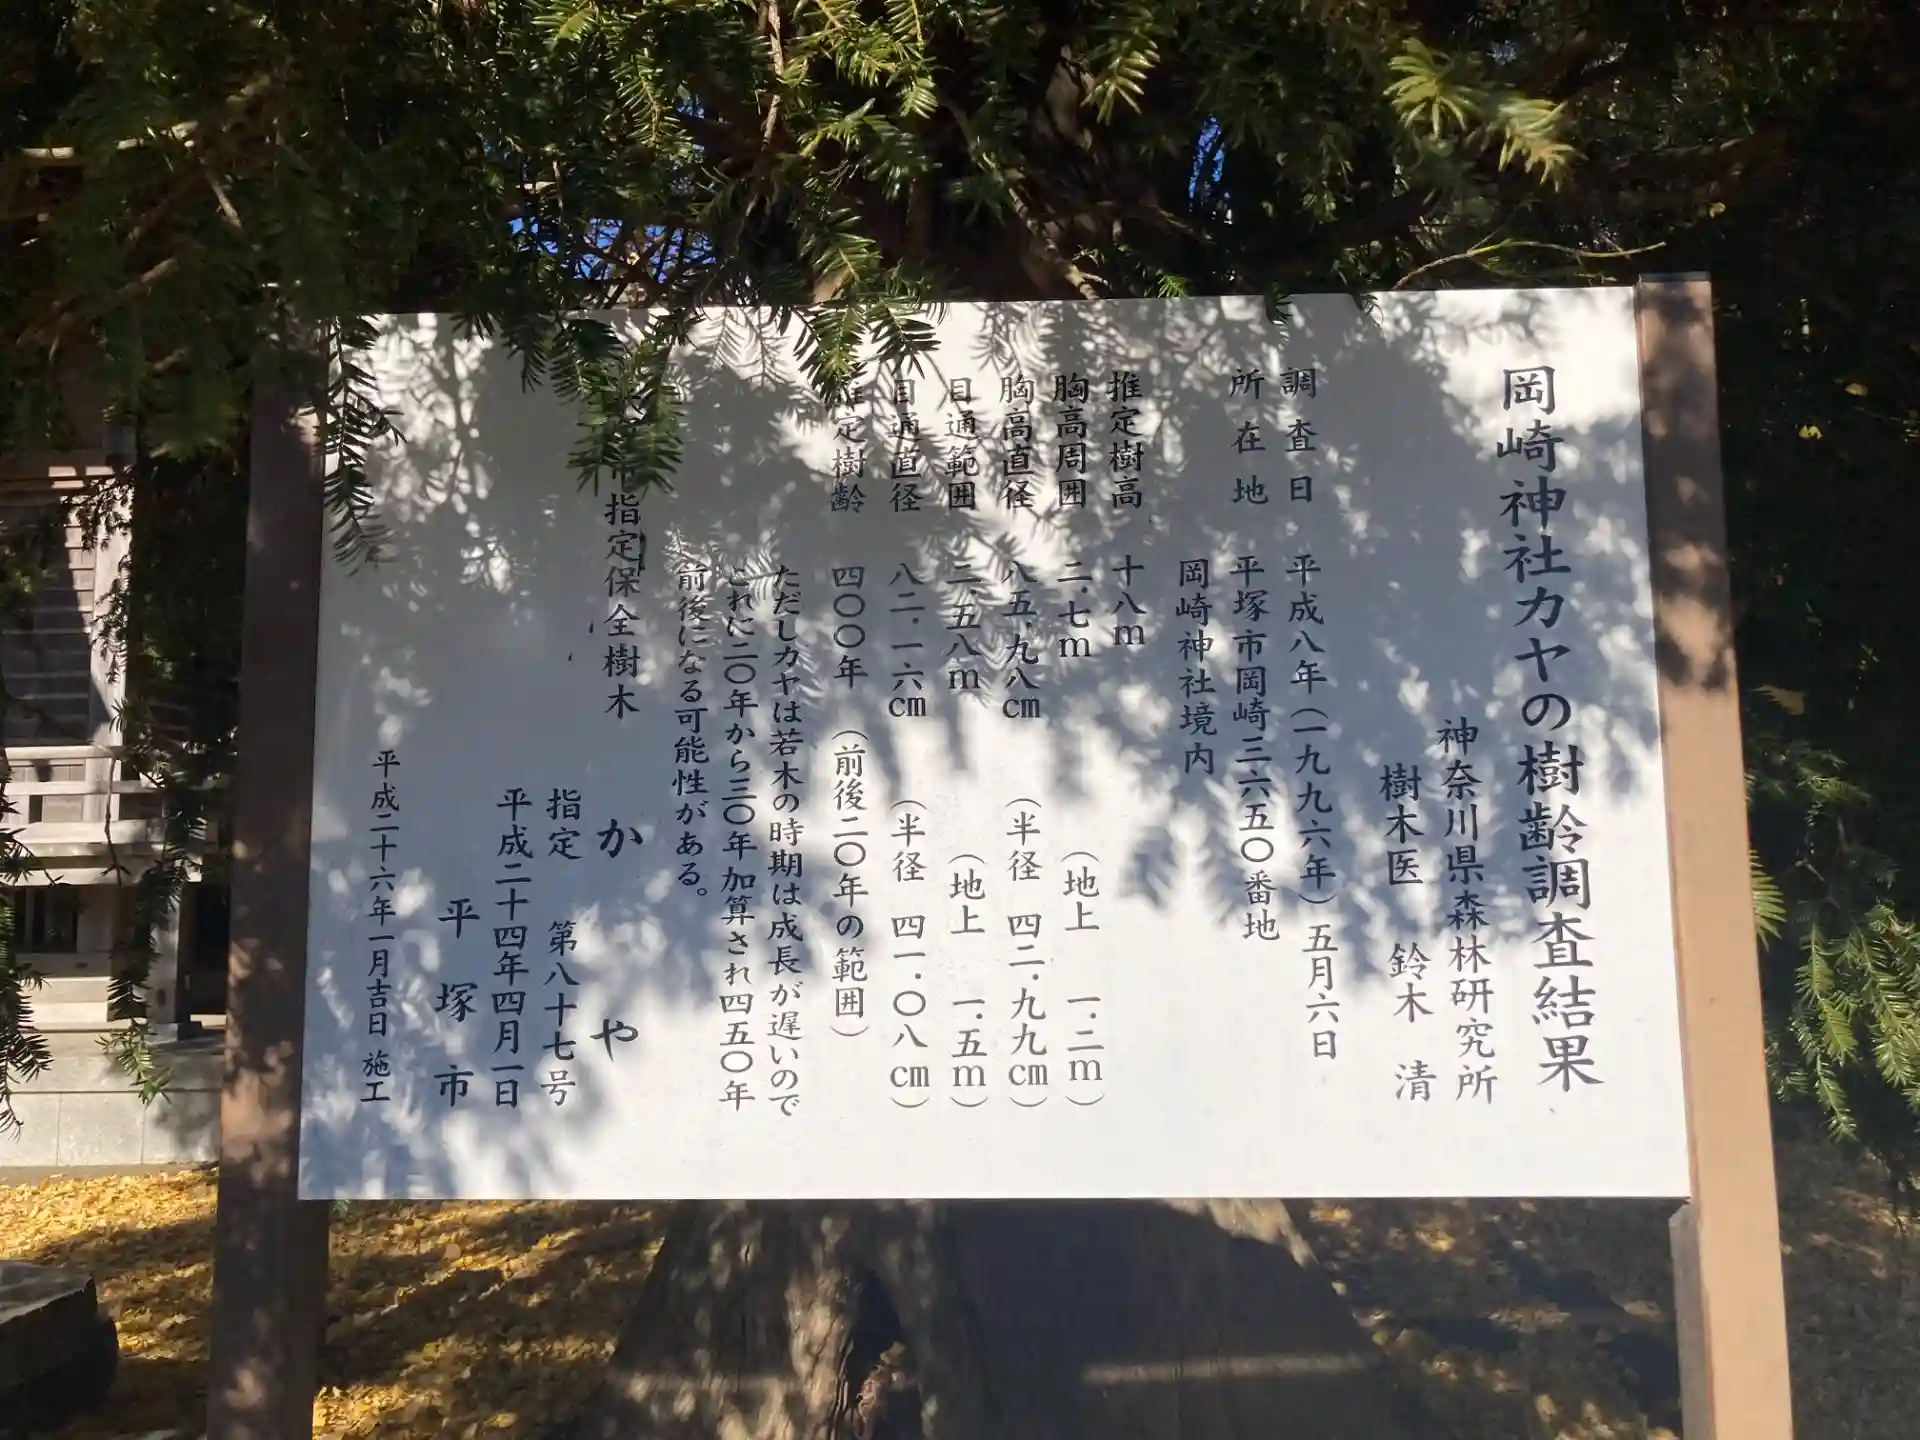 岡崎神社カヤの樹齢調査結果
神奈川県森林研究所
樹木医 鈴木 清
調査日 平成八年(一九九六年)五月六日
所在地 平塚市岡崎三六五〇番地
岡崎神社境内
推定樹高 十八m
胸高周囲 二.七m (地上 一.二m)
胸高直径 八五.九八㎝ (半径 四二.九九㎝)
目通範囲 二.五八m (地上 一.五m)
目通直径 八二.一六㎝ (半径 四一.〇八㎝)
推定樹齢 四〇〇年 (前後二〇年の範囲)
ただしカヤは若木の時期は成長が遅いので
これに二〇年から三〇年加算され四五〇年
前後になる可能性がある。
指定保全樹木 かや
指定 第八十七号
平成二十四年四月一日
平塚市
平成二十六年一月吉日 施工